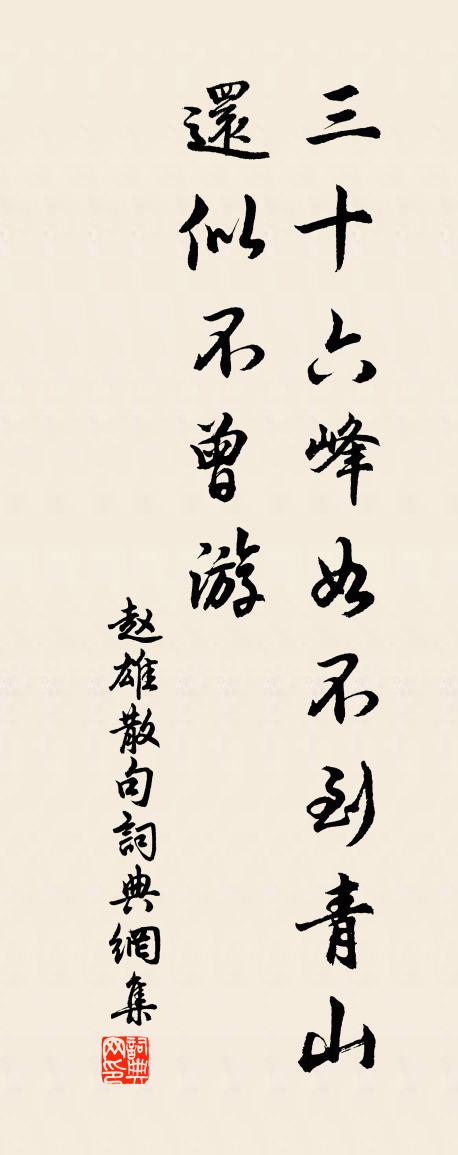 三十六峰如不到青山
還似不曾游
赵雄散句詞典網集
詞典网印